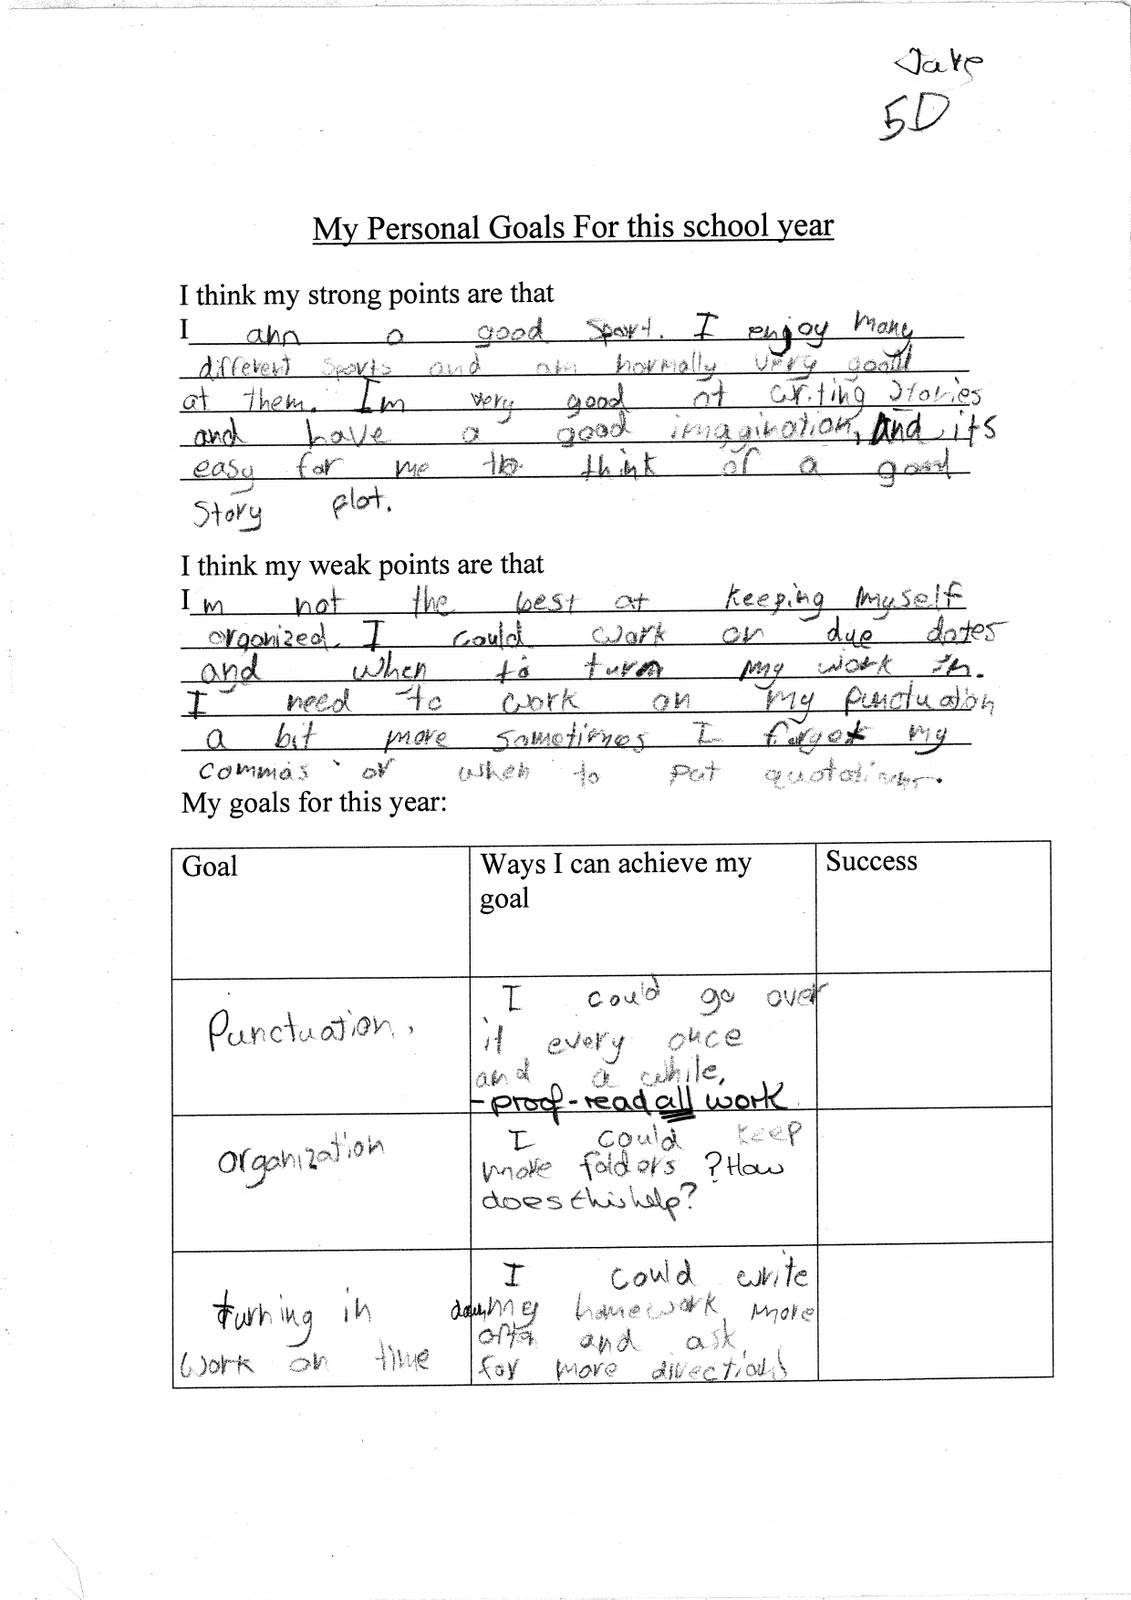 Jake
5D
My Personal Goals For this school year
I think my strong points are that
I am a good sport. I enjoy many
different sports and am normally very good
at them. Im very good at writing stories
and have a good imagination, And its
easy for me to think of a good
story plot.
I think my weak points are that
Im not the best at keeping myself
organized. I could work on due dates
and when to turn my work in.
I need to work on my punctuation
a bit more sometimes I forget my
commas or when to put
My goals for this year:
Goal
Ways I can achieve my
goal
Success
Punctuation.
I could go over
it every once
and a while,
-proof-read all work
organization
I could keep
more folders ?How
does this help?
turning in
work on time
I could write
down my homework more
often and ask
for more directions